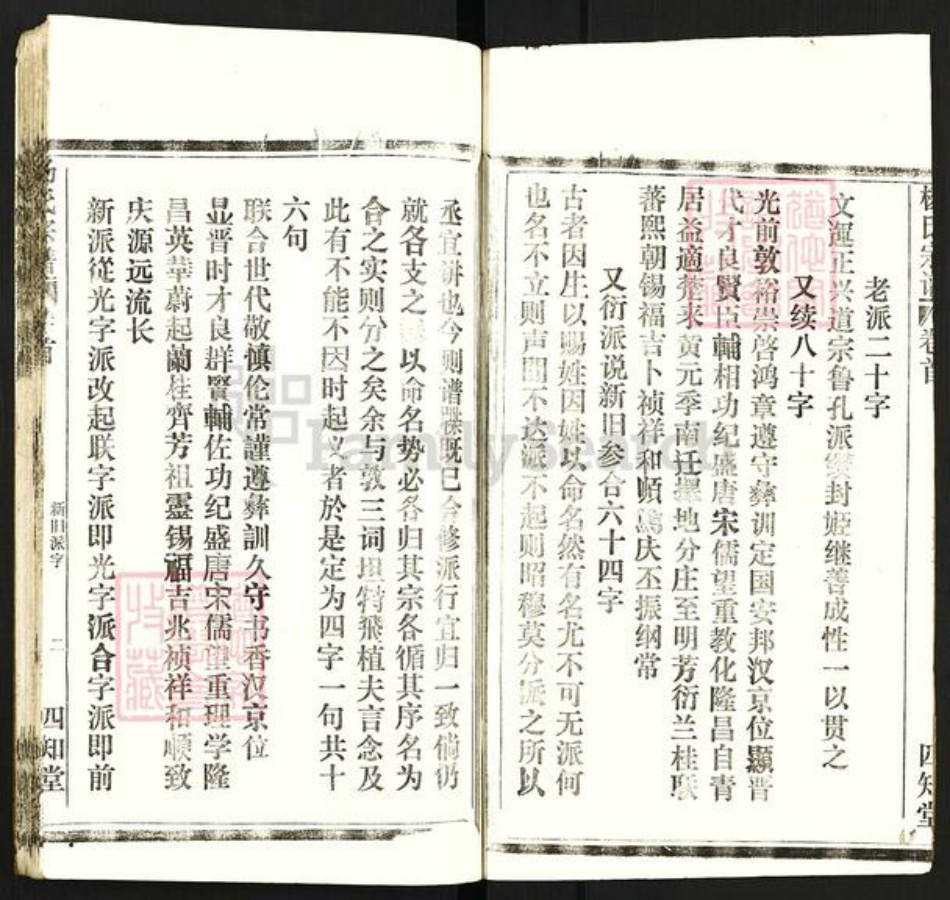 杨氏宗谱 卷首 四知堂
老派二十字
文運正兴道宗鲁孔派封姬继善成性一以贯之
又续八十字
光前敦裕崇啓鸿章遵守彝训定国安邦汉京位顯晋
代才良賢臣輔相功纪盛唐宋儒望重教化隆昌自青
居益適楚来黄元季南迁擇地分庄至明芳衍兰桂联
蕃熙朝锡福吉卜祯祥和順篤庆丕振纲常
又衍派说新旧参合六十四字
古者因生以赐姓因姓以命名然有名尤不可无派何
也名不立则声聞不达派不起则昭穆莫分派之所以
丞宜讲也今则谱牒既已合修派行宜归一致倘仍
就各支之以命名势必各归其宗各循其序名为
合之实则分之矣余与敦三词坦特飛植夫言念及
此有不能不因时起义者於是定为四字一句共十
六句
联合世代敬慎伦常謹遵彝訓久守书香汉京位
显晋时才良群賢輔佐功纪盛唐宋儒望重理学隆
昌英華蔚起蘭桂齊芳祖靈锡福吉兆祯祥和順致
庆源远流长
新派從光字派改起联字派即光字派合字派即前
新旧派字 二 四知堂
FamilySearch